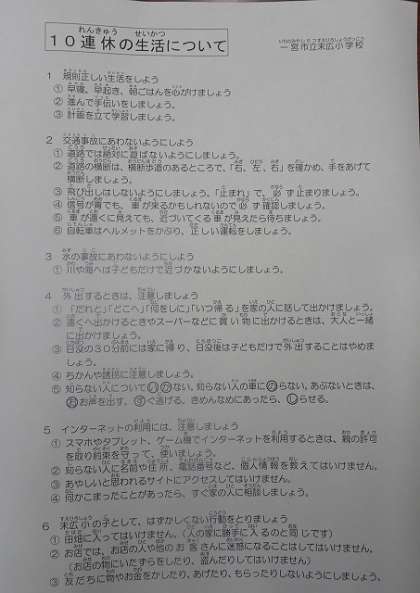 10連休の生活について
一宮市立末広小学校
1 規則正しい生活をしよう
① 早寝、早起き、朝ごはんを心がけましょう
② 進んで手伝いをしましょう。
③ 計画を立て学習しましょう。
2 交通事故にあわないようにしよう
① 道路では絶対に遊ばないようにしましょう。
② 道路の横断は、横断歩道のあるところで、「右、左、右」を確かめ、手をあげて
横断しましょう。
③ 飛び出しはしないようにしましょう。「止まれ」で、必ず止まりましょう。
④ 信号が青でも、車が来るかもしれないので必ず確認しましょう。
⑤ 車が遠くに見えても、近づいてくる車が見えたら待ちましょう。
⑥ 自転車はヘルメットをかぶり、正しい運転をしましょう。
3 水の事故にあわないようにしよう
① 川や海へは子どもだけで近づかないようにしましょう。
4 外出するときは、注意しましょう
① 「だれと」「どこへ」「何をしに」「いつ帰る」を家の人に話して出かけましょう。
② 遠くへ出かけるときやスーパーなどに買い物に出かけるときは、大人と一緒
に出かけましょう。
③ 日没の30分前には家に帰り、日没後は子どもだけで外出することはやめま
しょう。
④ ちかんや誘拐に注意しましょう。
⑤ 知らない人についていかない、知らない人の車にのらない、あぶないときは、
おお声を出す、すぐ逃げる、きめんなにあったら、しらせる。
5 インターネットの利用には、注意しましょう
① スマホやタブレット、ゲーム機でインターネットを利用するときは、親の許可
を取り約束を守って、使いましょう。
② 知らない人に名前や住所、電話番号など、個人情報を教えてはいけません。
③ あやしいと思われるサイトにアクセスしてはいけません。
④ 何かこまったことがあったら、すぐ家の人に相談しましょう。
6 末広小の子として、はずかしくない行動をとりましょう
① 田畑に入ってはいけません。(人の家に勝手に入るのと同じです)
② お店では、お店の人や他のお客さんに迷惑になることしてはいけません。
(お店の物にいたずらをしたり、盗んだりしてはいけません)
③ 友だちに物やお金をかしたり、あげたり、もらったりしないようにしましょう。